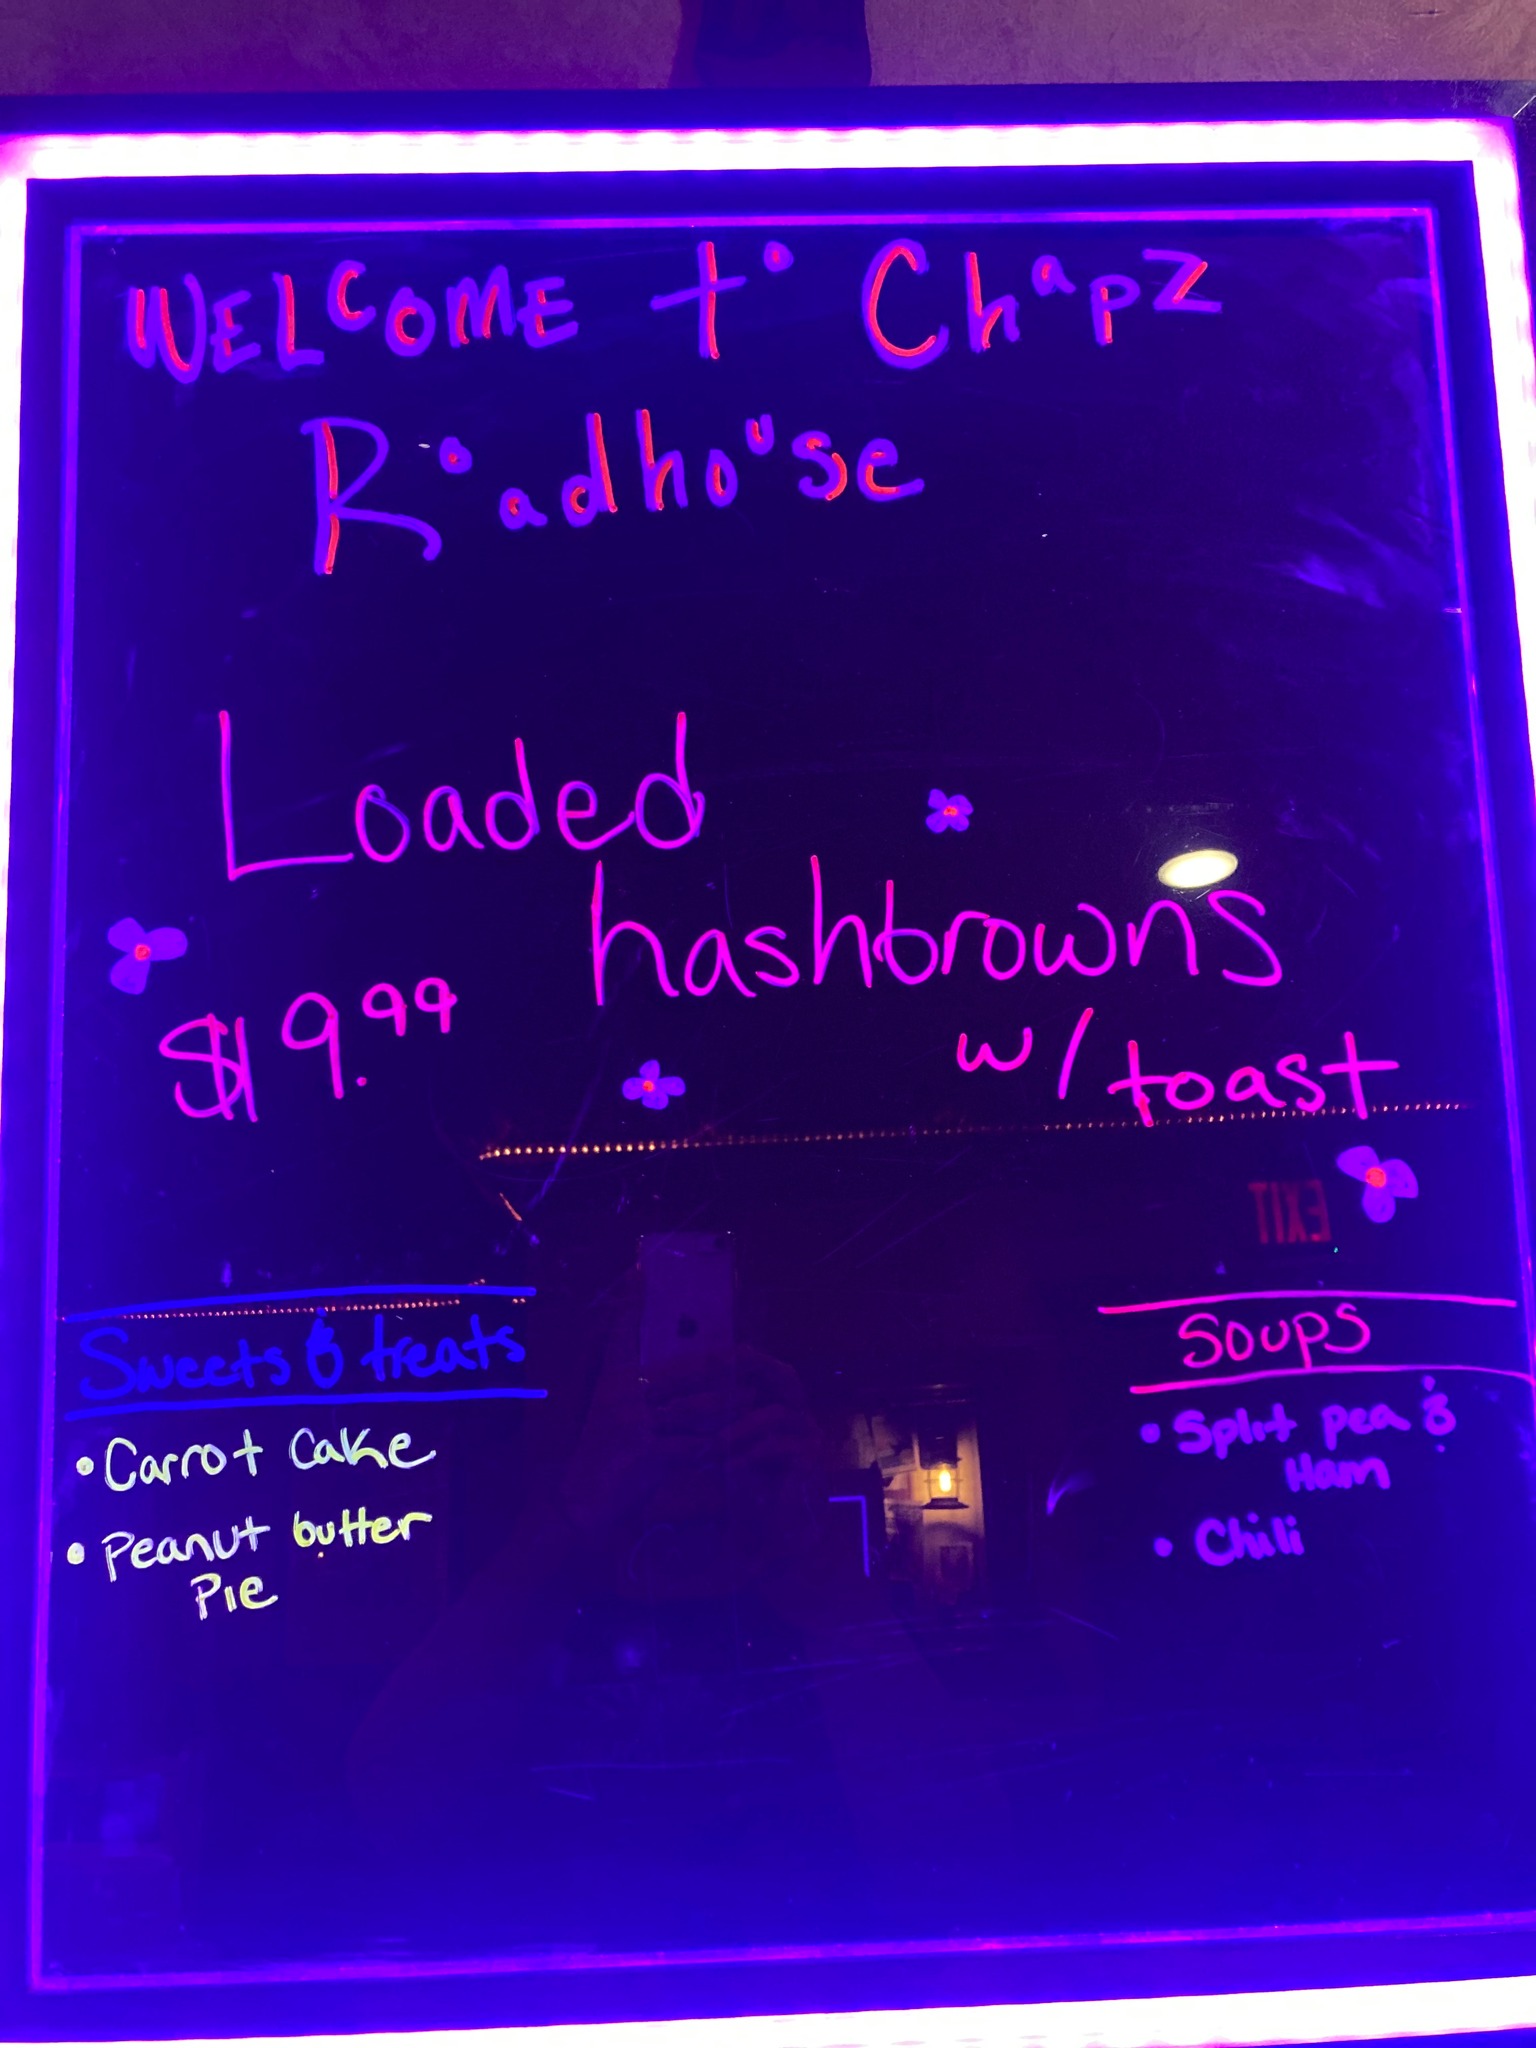 WELCOME to Chapz
Roadhouse
Loaded
hashbrowns
$19.99
w/ toast
EXIT
Sweets & treats
• Carrot Cake
• Peanut butter
Pie
Soups
• Split pea &
Ham
• Chili